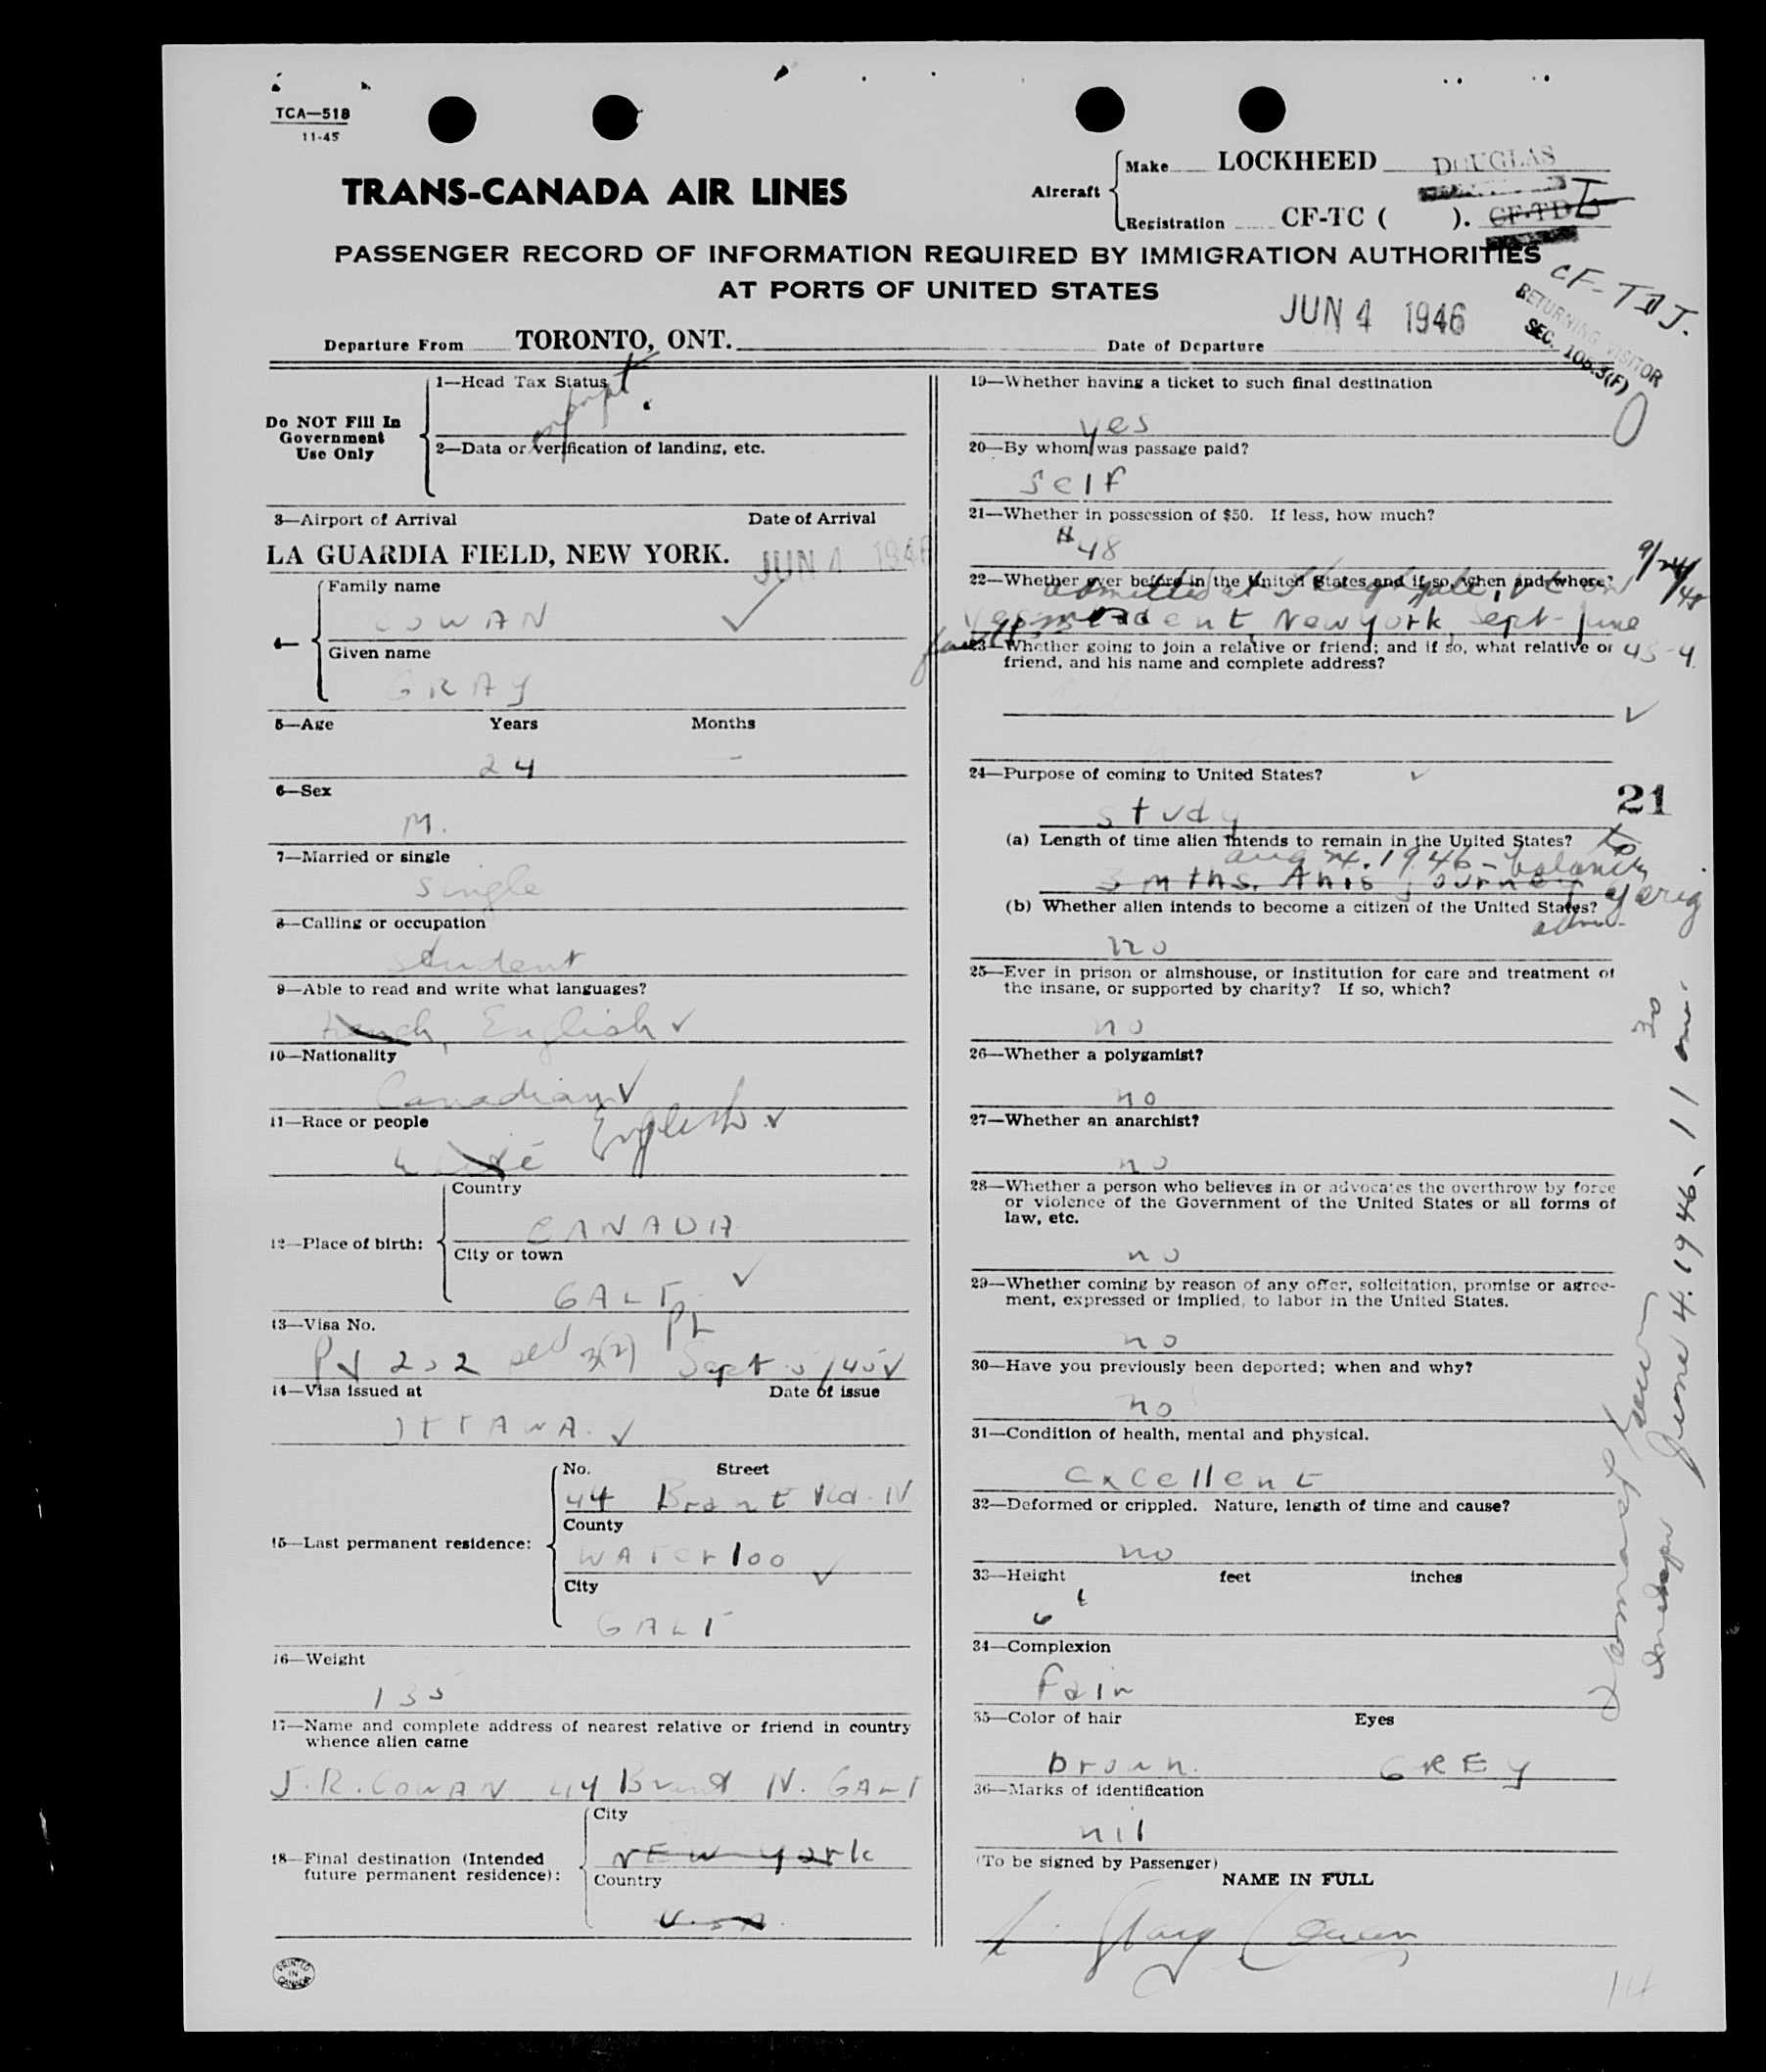 TCA—518
11-45
TRANS-CANADA AIR LINES
Aircraft
Make LOCKHEED DOUGLAS
Registration CF-TC ( ). CF-TD
CF-TDJ.
PASSENGER RECORD OF INFORMATION REQUIRED BY IMMIGRATION AUTHORITIES
AT PORTS OF UNITED STATES
RETURNING VISITOR
SEC. 105.3(F)
Departure From TORONTO, ONT. Date of Departure JUN 4 1946
Do NOT Fill In
Government
Use Only
1—Head Tax Status
2—Data or verification of landing, etc.
3—Airport of Arrival Date of Arrival
LA GUARDIA FIELD, NEW YORK. JUN 4 1946
4—
Family name
COWAN
Given name
GRAY
5—Age Years Months
24 -
6—Sex
M.
7—Married or single
single
8—Calling or occupation
student
9—Able to read and write what languages?
French, English
10—Nationality
Canadian
11—Race or people
white English
12—Place of birth:
Country
CANADA
City or town
GALT
13—Visa No.
PV 202 3(2) Sept 5/45
14—Visa issued at Date of issue
OTTAWA.
15—Last permanent residence:
No. Street
44 Brant Rd. N
County
Waterloo
City
GALT
16—Weight
135
17—Name and complete address of nearest relative or friend in country
whence alien came
J.R. COWAN 44 Brant N. GALT
18—Final destination (Intended
future permanent residence):
City
NEW York
Country
U.S.A.
PRINTED
IN
CANADA
19—Whether having a ticket to such final destination
yes
20—By whom was passage paid?
self
21—Whether in possession of $50. If less, how much?
$48
22—Whether ever before in the United States and if so, when and where?
admitted at
9/24/45
New York Sept - June
45-4
23—Whether going to join a relative or friend; and if so, what relative or
friend, and his name and complete address?
24—Purpose of coming to United States?
study
21
(a) Length of time alien intends to remain in the United States?
to
Aug 24, 1946 - balance
3 mths. this journey
(b) Whether alien intends to become a citizen of the United States?
no
25—Ever in prison or almshouse, or institution for care and treatment of
the insane, or supported by charity? If so, which?
no
26—Whether a polygamist?
no
27—Whether an anarchist?
no
28—Whether a person who believes in or advocates the overthrow by force
or violence of the Government of the United States or all forms of
law, etc.
no
29—Whether coming by reason of any offer, solicitation, promise or agree-
ment, expressed or implied, to labor in the United States.
no
30—Have you previously been deported; when and why?
no
31—Condition of health, mental and physical.
excellent
32—Deformed or crippled. Nature, length of time and cause?
no
33—Height feet inches
6
34—Complexion
Fair
35—Color of hair Eyes
brown. GREY
36—Marks of identification
nil
(To be signed by Passenger)
NAME IN FULL
Gray Cowan
June 4. 1946
14